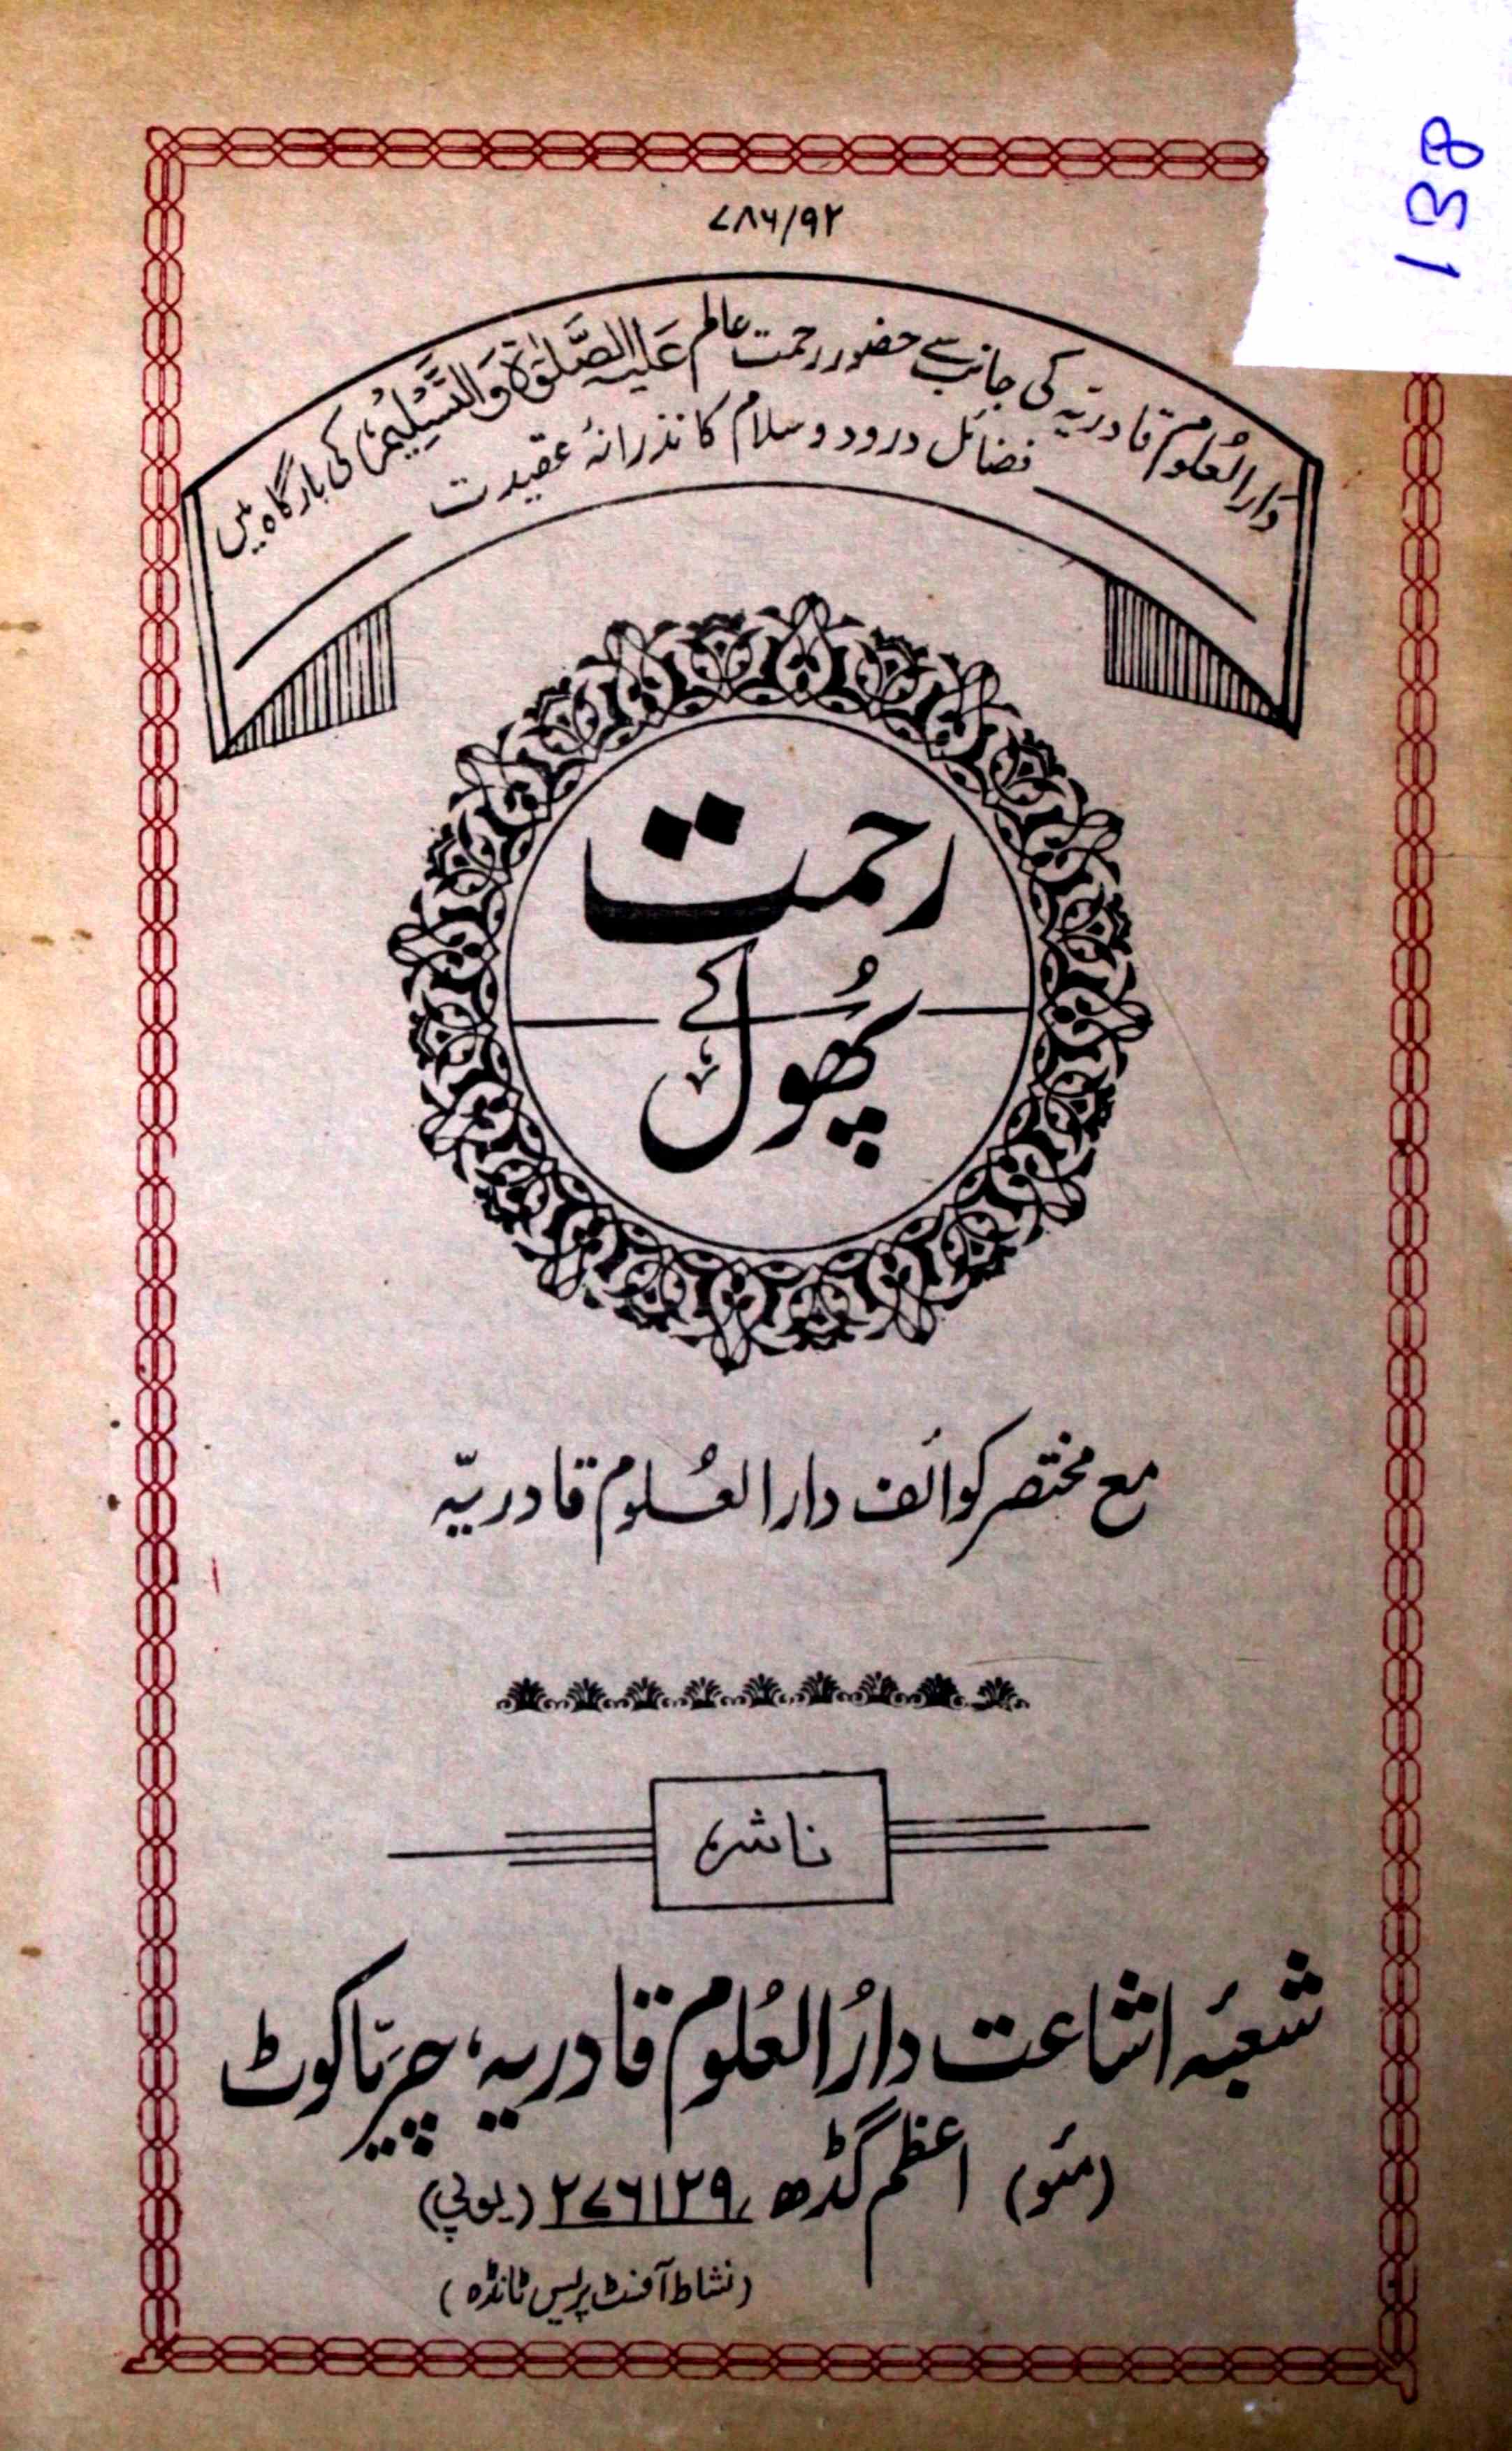 138
۷۸۶/۹۲
دارالعُلوم قادریّہ کی جانب سے حضور رحمت عالم عَلَیہِ الصَّلوٰۃُ وَالتَّسْلِیْمُ کی بارگاہ میں
فضائل درود و سلام کا نذرانۂ عقیدت
رحمت
کے
پھُول
مع مختصر کوائف دارالعُلوم قادریّہ
ناشر
شعبۂ اشاعت دارُالعُلوم قادریہ، چریّاکوٹ
(مئو) اعظم گڈھ ۲۷۶۱۲۹ (یوپی)
(نشاط آفسٹ پریس ٹانڈہ)